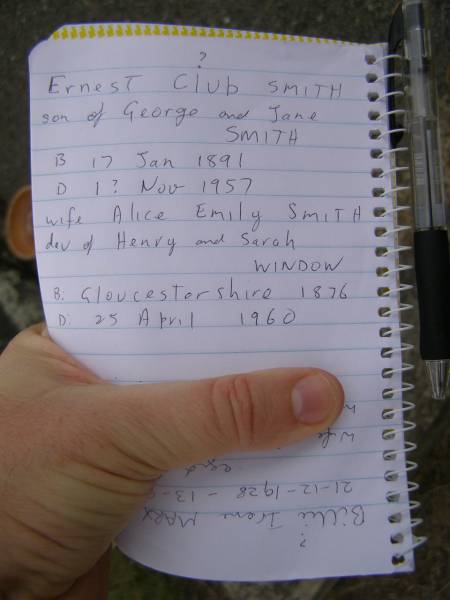 ?
Ernest Club SMITH
son of George and Jane
SMITH
B 17 Jan 1891
D 1? Nov 1957
wife Alice Emily SMITH
dev of Henry and Sarah
WINDOW
B: Gloucestershire 1876
D: 25 April 1960
wife
21-12-1928 - 13-
Billie
?